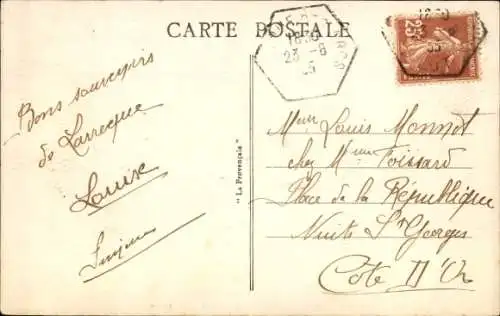 CARTE POSTALE
18 30
23 - 8
35
25
Bons souvenirs
de Larreque
Louise
"La Provençale"
Mme Louis Monnot
chez Mme Foissard
Place de la République
Nuits St Georges
Côte D'Or